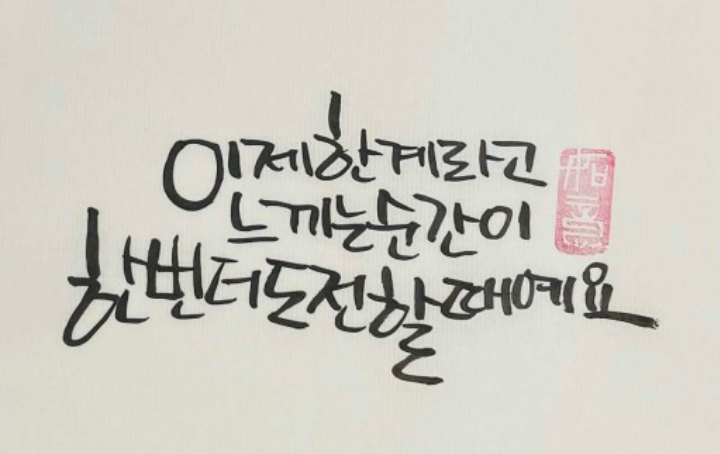 이제 한계라고
느끼는 순간이
한번 더 도전할 때예요